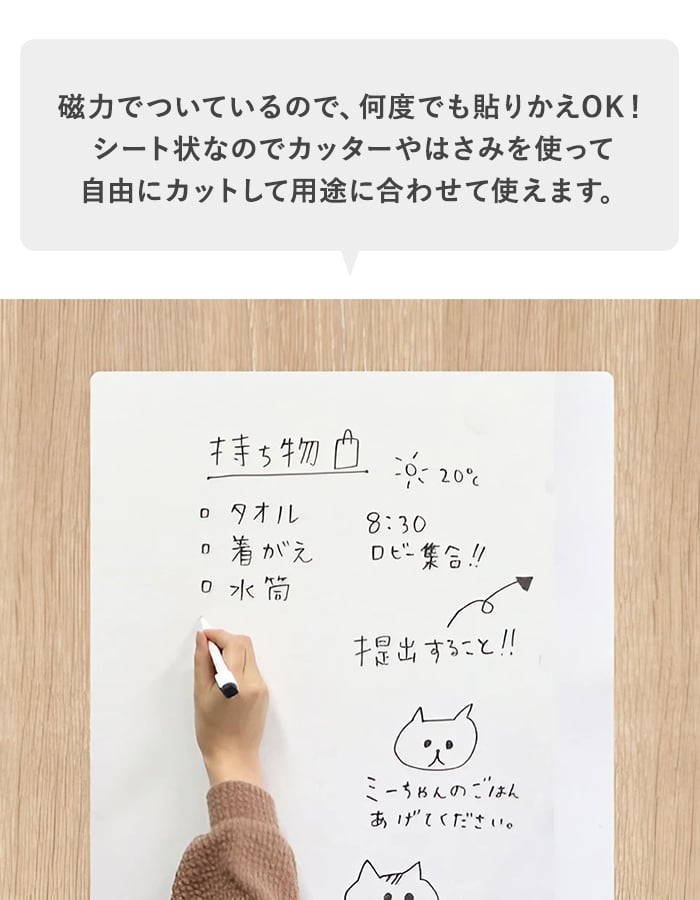 磁力でついているので、何度でも貼りかえOK！
シート状なのでカッターやはさみを使って
自由にカットして用途に合わせて使えます。
持ち物
20℃
タオル
8:30
着がえ
ロビー集合!!
水筒
提出すること!!
ミーちゃんのごはん
あげてください。